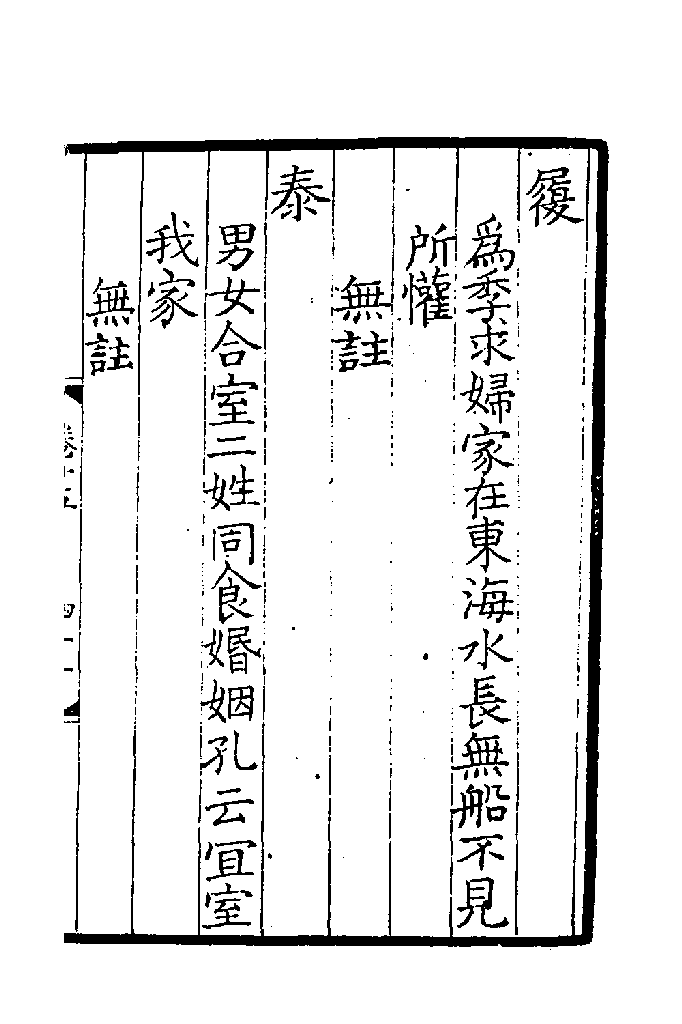 履
為季求婦家在東海水長無船不見
所懽
無註
泰
男女合室二姓同食婚姻孔云宜室
我家
無註